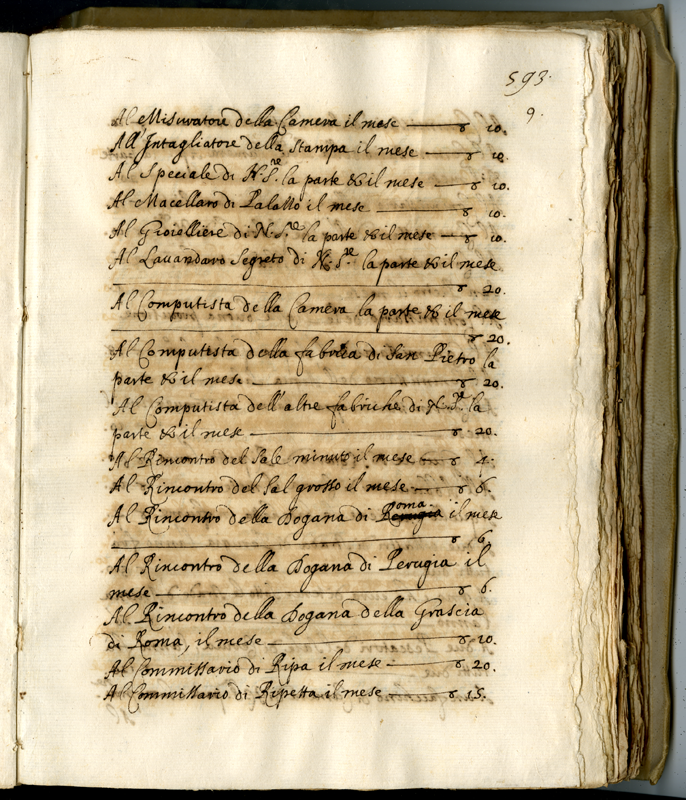 593.
9.
Al Misuratore della Camera il mese — ꝩ 10.
All'Intagliatore della stampa il mese — ꝩ 10.
Al Speciale di N. S.re la parte & il mese — ꝩ 10.
Al Macellaro di Palazzo il mese — ꝩ 10.
Al Gioielliere di N. S.re la parte & il mese — ꝩ 10.
Al Lavandaro Segreto di N. S.re la parte & il mese
— ꝩ 20.
Al Computista della Camera la parte & il mese
— ꝩ 20.
Al Computista della fabrica di San Pietro la
parte & il mese — ꝩ 20.
Al Computista dell'altre fabriche di N. S.re la
parte & il mese — ꝩ 20.
Al Rincontro del Sale minuto il mese — ꝩ 4.
Al Rincontro del Sal grosso il mese — ꝩ 6.
Al Rincontro della Dogana di Roma il mese
— ꝩ 6.
Al Rincontro della Dogana di Perugia il
mese — ꝩ 6.
Al Rincontro della Dogana della Grascia
di Roma, il mese — ꝩ 10.
Al Commissario di Ripa il mese — ꝩ 20.
Al Commissario di Ripetta il mese — ꝩ 15.